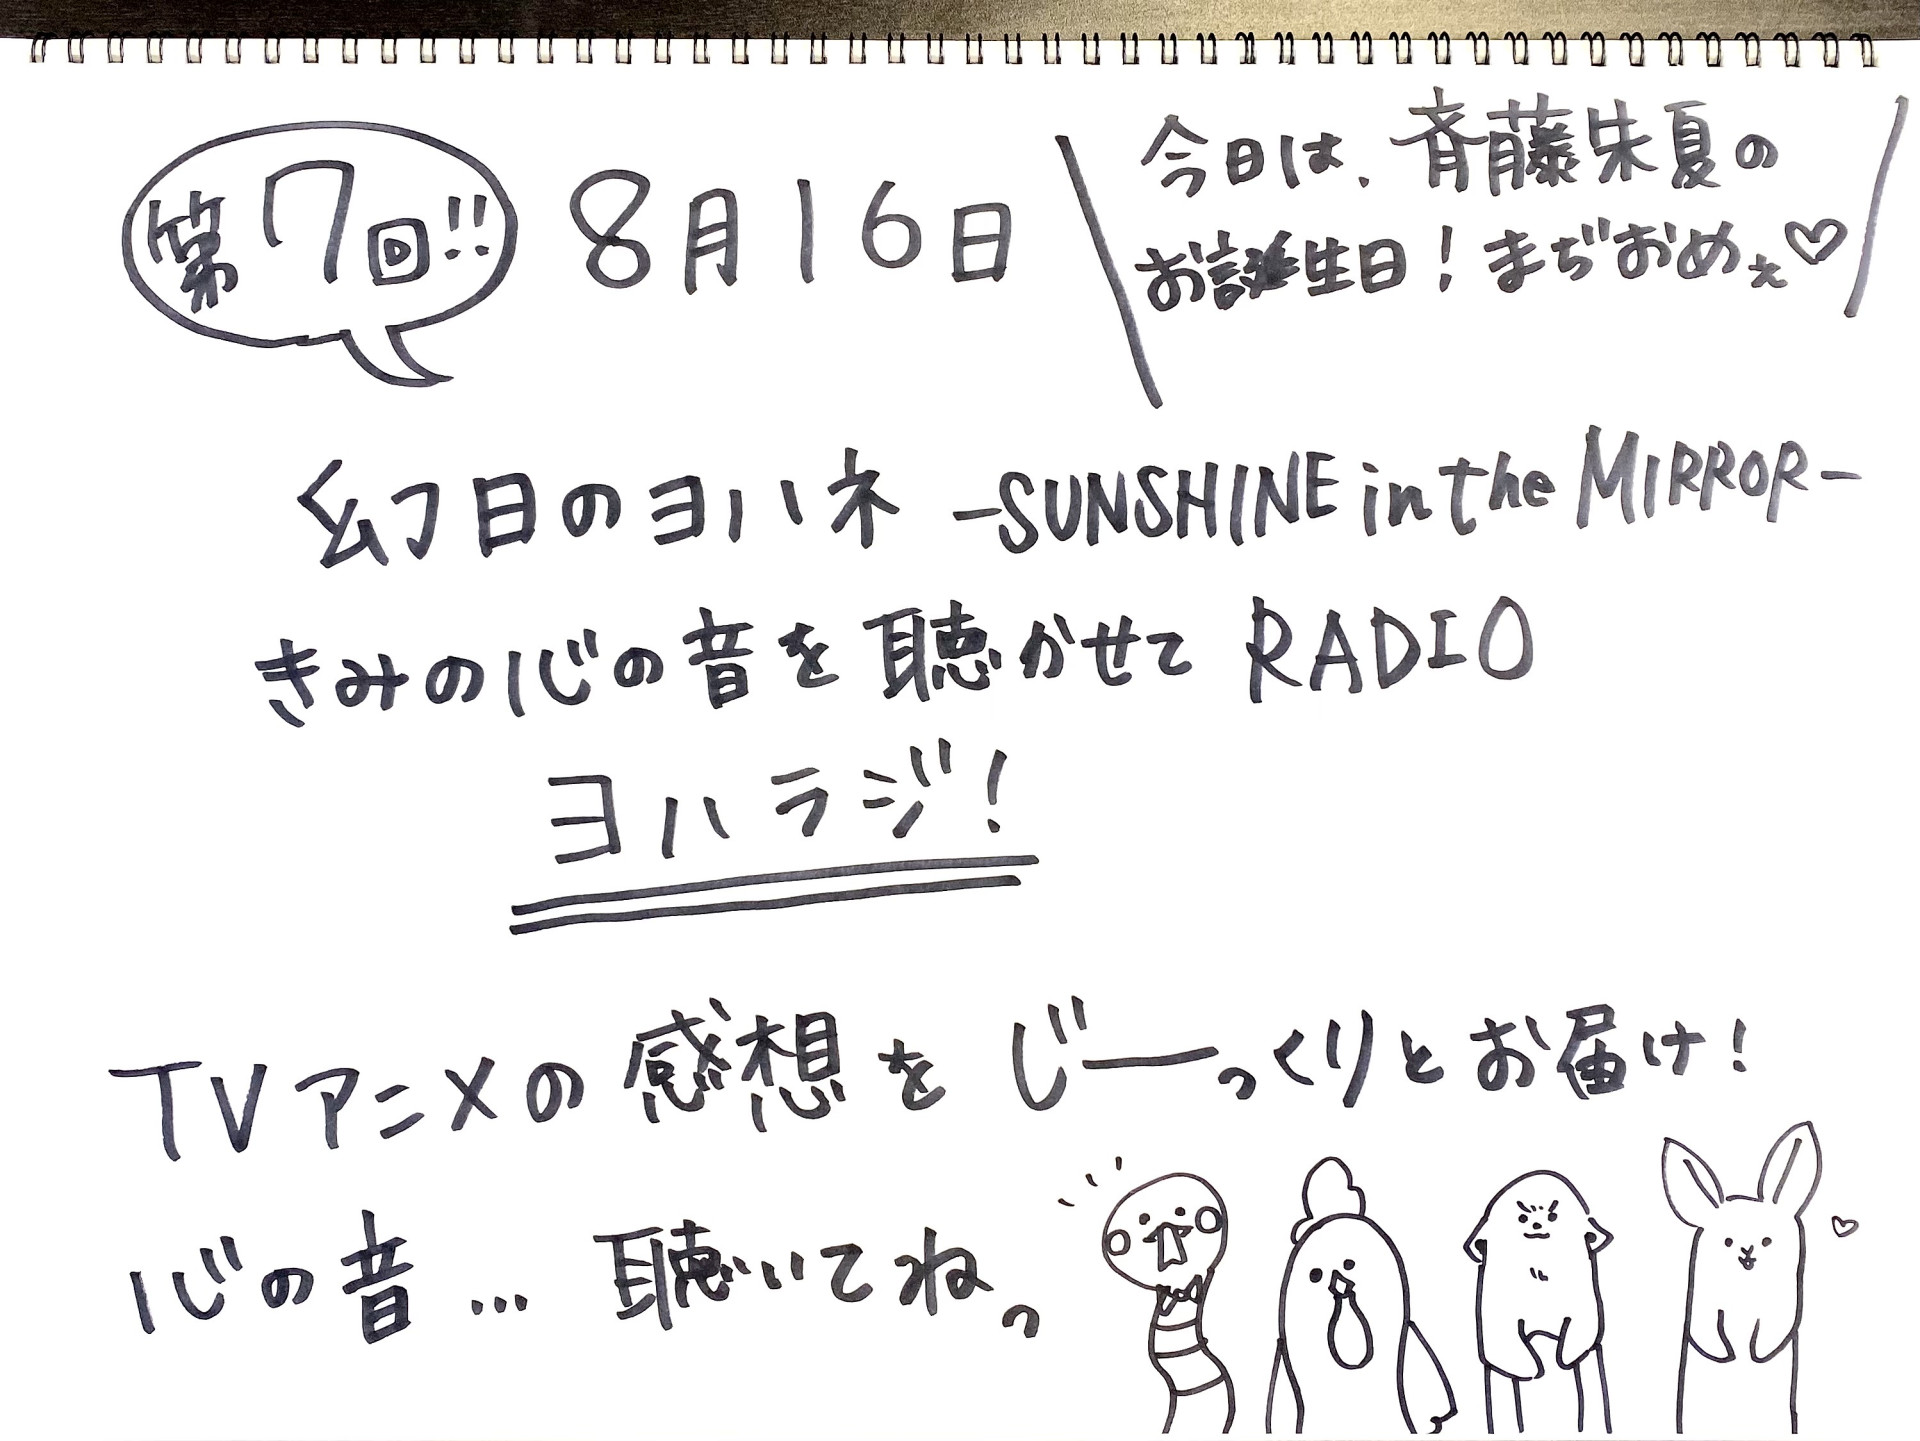 第7回!! 8月16日
今日は、斉藤朱夏の
お誕生日!まぢおめぇ♡
幻日のヨハネ -SUNSHINE in the MIRROR-
きみの心の音を聴かせて RADIO
ヨハラジ!
TVアニメの感想をじーっくりとお届け!
心の音…聴いてねっ